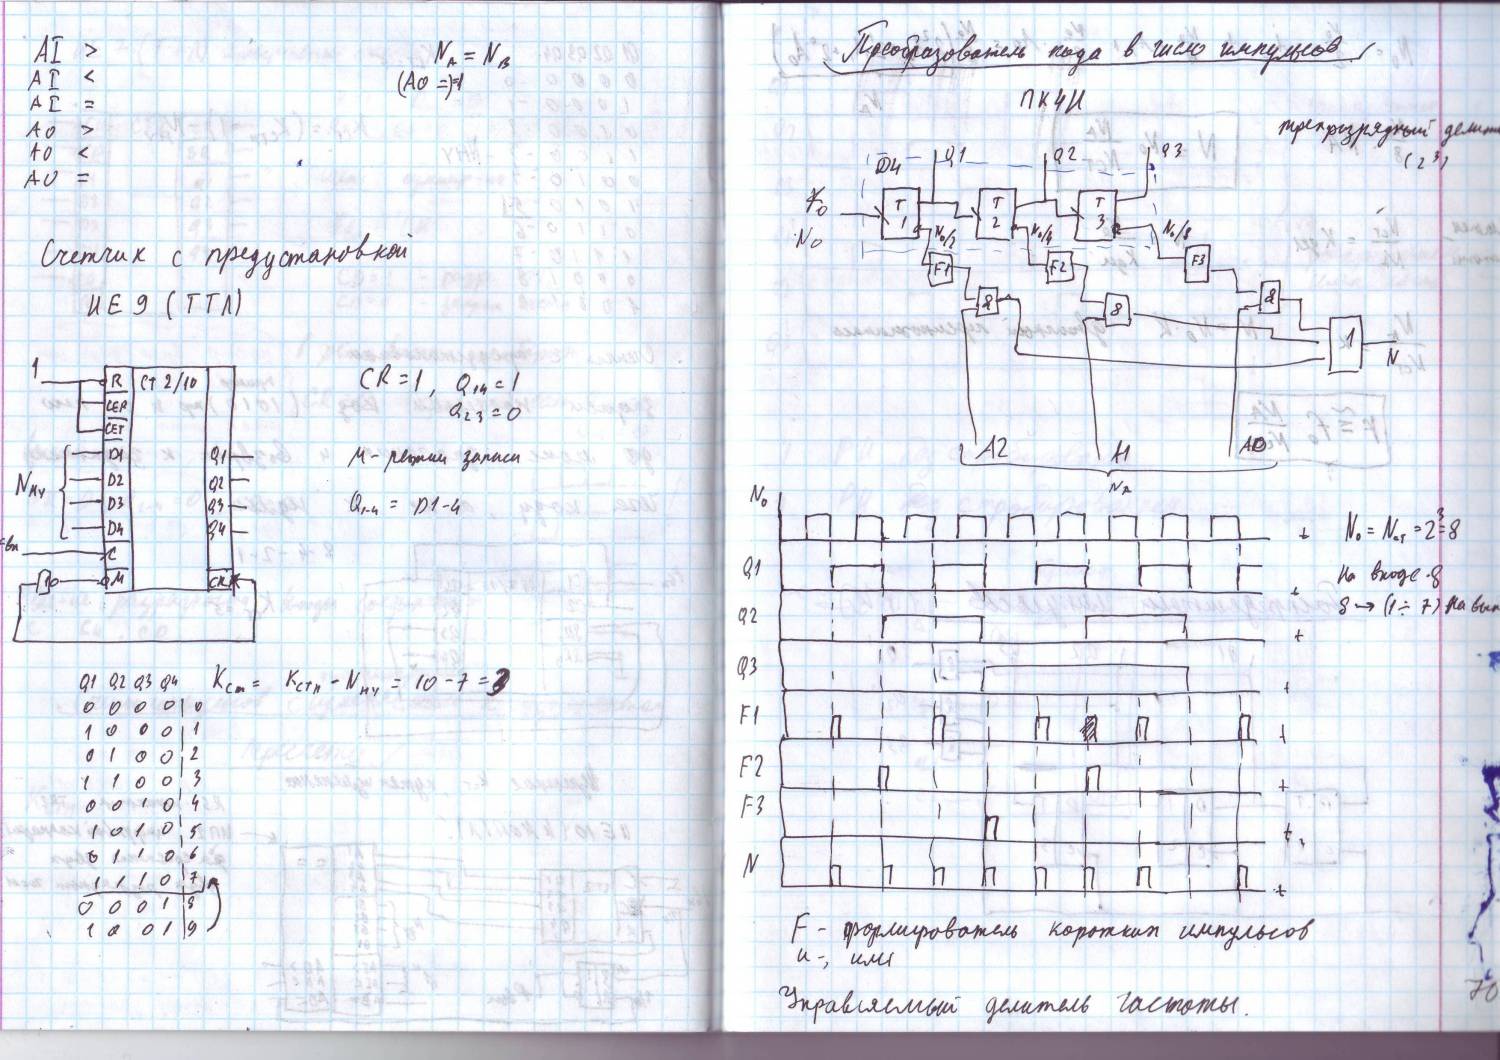 AI >
AI <
AI =
A0 >
A0 <
A0 =
N_A = N_B
(A0 =)=1
Счетчик с предустановкой
ИЕ9 (ТТЛ)
1
R СТ2/10
CEP
CET
D1 Q1
D2 Q2
D3 Q3
D4 Q4
C
M CR
N_ну
CR=1, Q_1,4 = 1
Q_2,3 = 0
M - режим записи
Q_1-4 = D1-4
Q1 Q2 Q3 Q4
0 0 0 0 0
1 0 0 0 1
0 1 0 0 2
1 1 0 0 3
0 0 1 0 4
1 0 1 0 5
0 1 1 0 6
1 1 1 0 7
0 0 0 1 8
1 0 0 1 9
K_ст = K_стп - N_ну = 10 - 7 = 3
Преобразователь кода в число импульсов
ПКЧИ
трехразрядный
(2^3)
D4 Q1 Q2 Q3
F0
N0
T 1
T 2
T 3
N0/2 N0/4 N0/8
F1 F2 F3
& & &
1
N
A2 A1 A0
N_A
N0
Q1
Q2
Q3
F1
F2
F3
N
t
t
t
t
t
t
t
t
N0 = N_ст = 2^3 = 8
На входе - 8
8 → (1 ÷ 7)
F - формирователь коротких импульсов
и -, или
Управляемый делитель частоты.
70